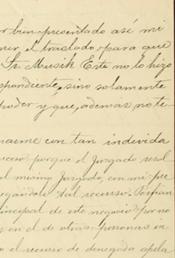 r bien presentado así mi
ner, el traslado para que
Sr. Mursik Este no lo hizo
spondiente, sino solamente
poder y que, ademas no te
narme con tan indevida
ceso, porque el Juzgado
el mismo juzgado, en mi
tal recurso.
incipal de este negocio por no
s en el de otras personas en
o el recurso de denegada apela